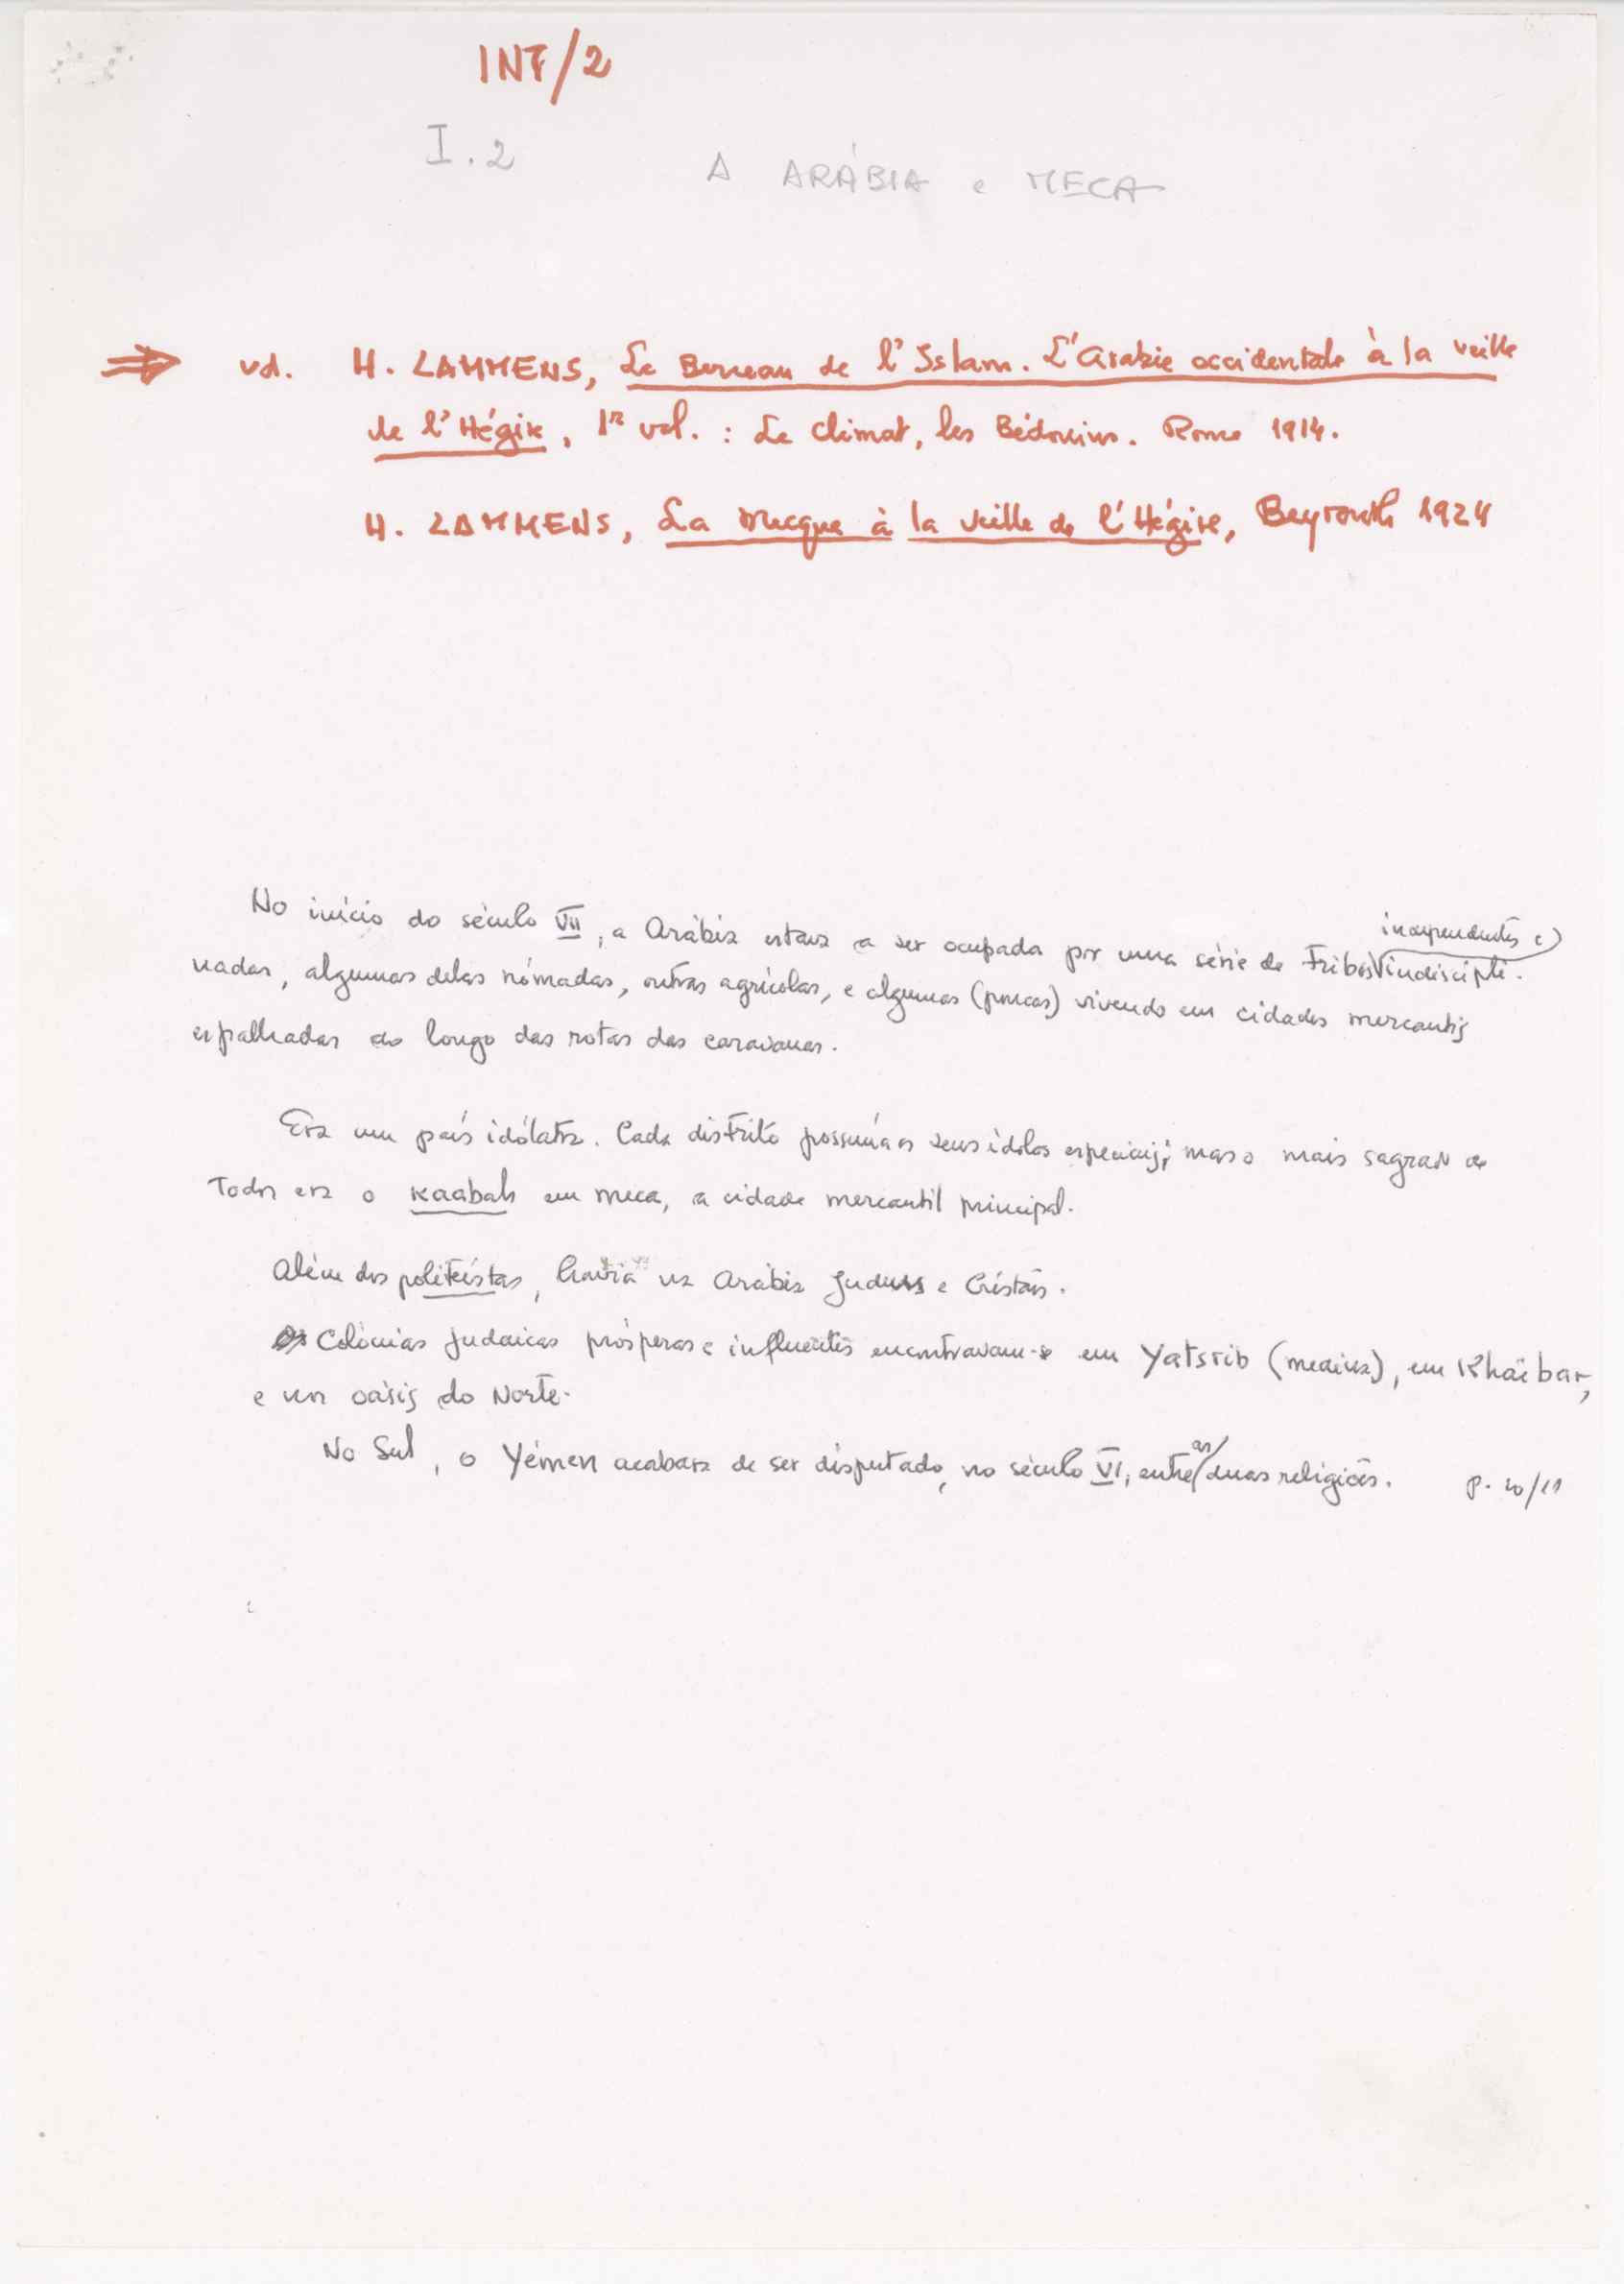 INF/2
I.2 A ARÁBIA e MECA
⇒ vd. H. LAMMENS, Le Berceau de l'Islam. L'Arabie occidentale à la veille
de l'Hégire, 1er vol. : Le climat, les Bédouins. Rome 1914.
H. LAMMENS, La Mecque à la veille de l'Hégire, Beyrouth 1924
independentes e
No início do século VII, a Arábia estava a ser ocupada por uma série de tribos indiscipli-
nadas, algumas delas nómadas, outras agrícolas, e algumas (poucas) vivendo em cidades mercantis
espalhadas ao longo das rotas das caravanas.
Era um país idólatra. Cada distrito possuía os seus ídolos especiais; mas o mais sagrado de
todos era o Kaabah em Meca, a cidade mercantil principal.
Além dos politeístas, havia na Arábia Judeus e Cristãos.
Colónias judaicas prósperas e influentes encontravam-se em Yatsrib (Medina), em Khaïbar,
e nos oásis do Norte.
No Sul, o Yémen acabara de ser disputado, no século VI, entre as duas religiões. p. 10/11